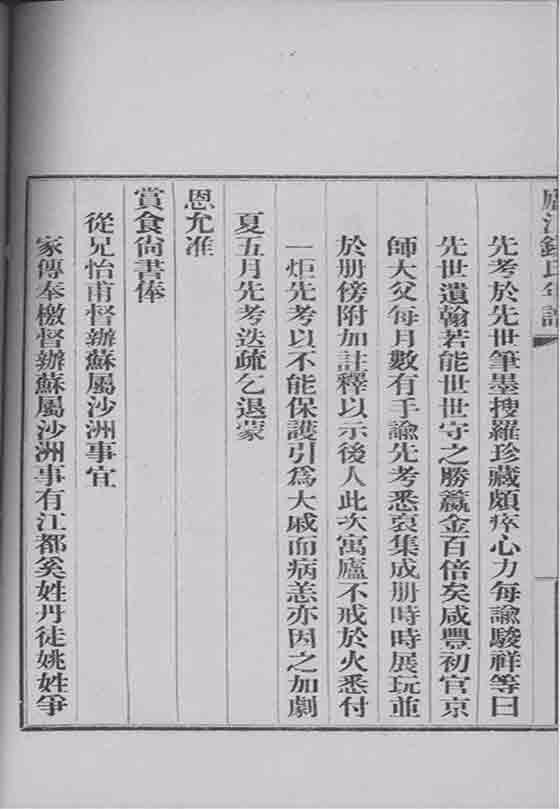 廬江錢氏年譜
先考於先世筆墨搜羅珍藏頗瘁心力每諭駿祥等曰
先世遺翰若能世世守之勝籯金百倍矣咸豐初官京
師大父每月數有手諭先考悉裒集成册時時展玩並
於册傍附加註釋以示後人此次寓廬不戒於火悉付
一炬先考以不能保護引爲大戚而病恙亦因之加劇
夏五月先考迭疏乞退蒙
恩允准
賞食尙書俸
從兄怡甫督辦蘇屬沙洲事宜
家傳奉檄督辦蘇屬沙洲事有江都奚姓丹徒姚姓爭